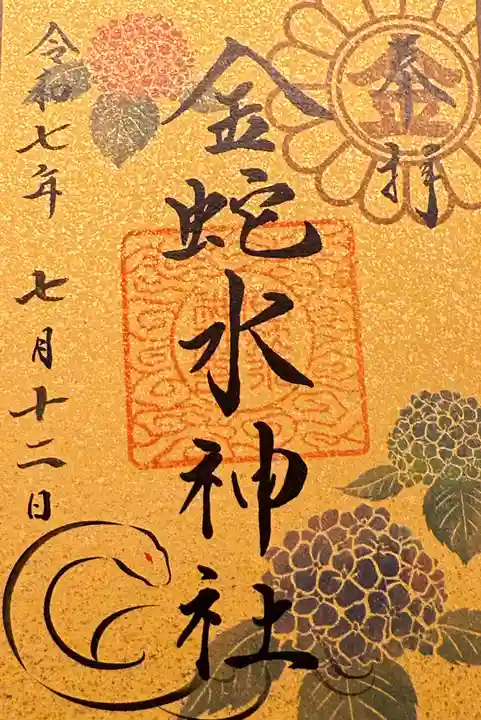 奉拝
金蛇水神社
令和七年 七月十二日